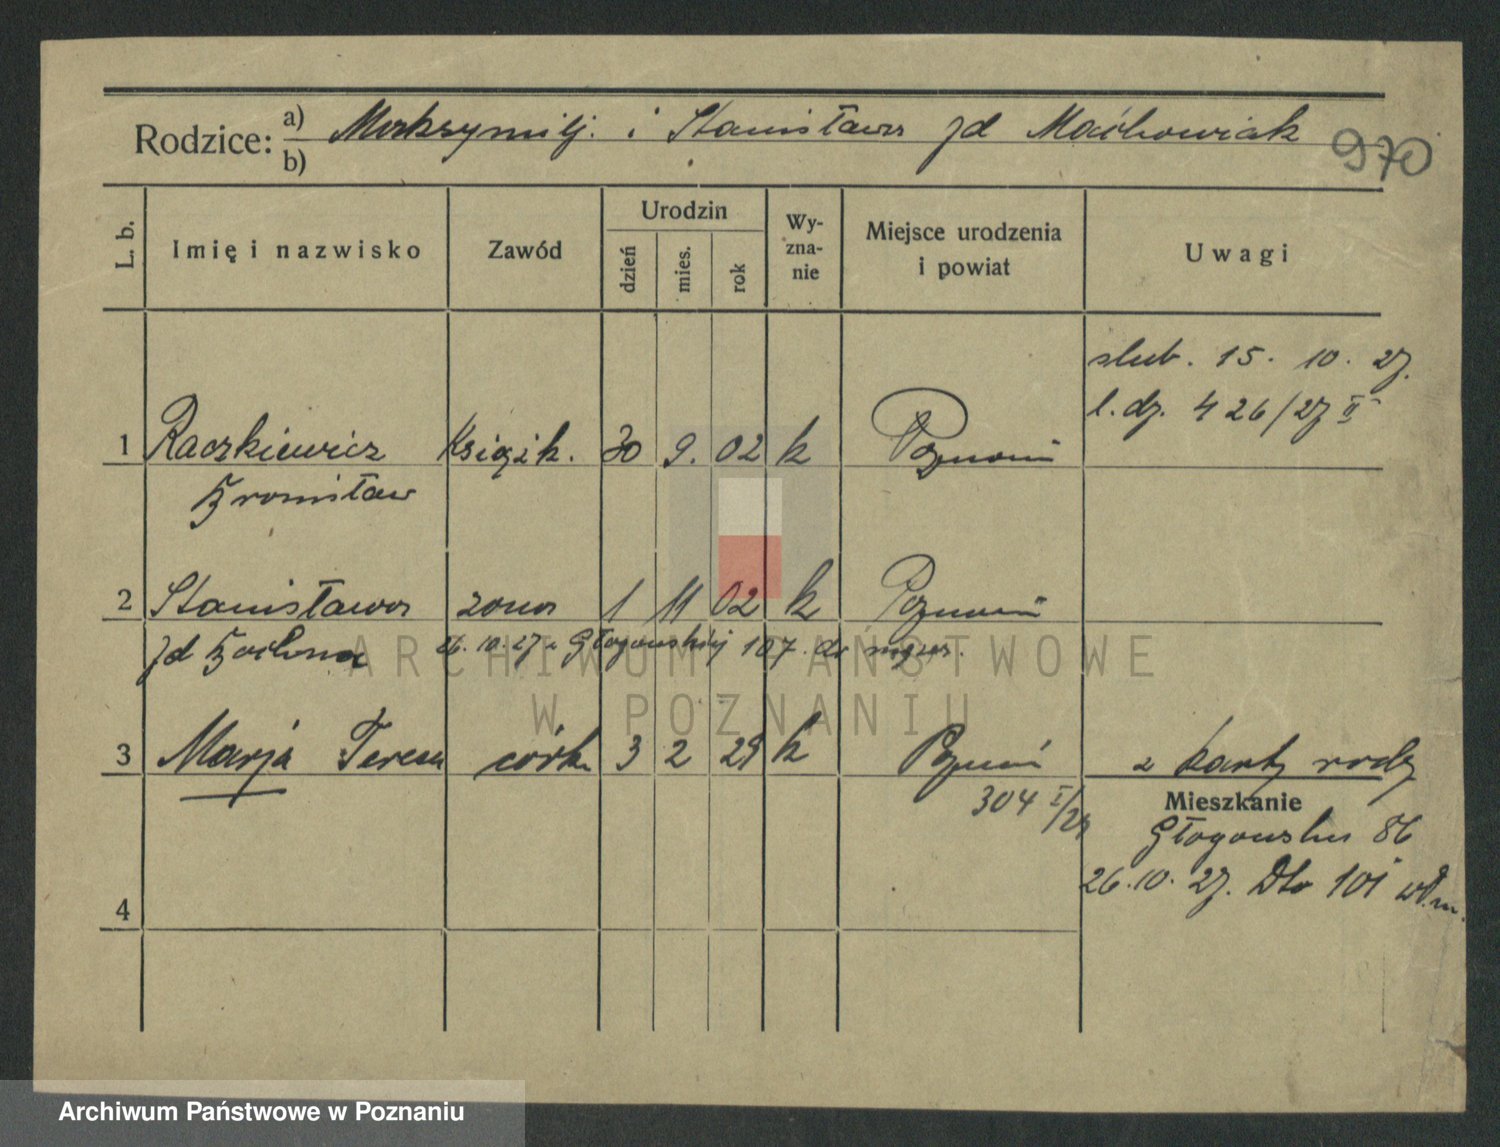 Rodzice: a) Maksymilj. i Stanisława zd Maćkowiak
b)
970
L. b.
Imię i nazwisko
Zawód
Urodzin
dzień
mies.
rok
Wy-
zna-
nie
Miejsce urodzenia
i powiat
Uwagi
slub. 15. 10. 27.
l. dz. 426/27 II
1 Raczkiewicz Księżk. 30 9. 02 k Poznań
Bronisław
2 Stanisława żona 1 11 02 k Poznań
zd 26. 10. 27 z Głogowskiej 107. do
3 Marja Teresa córka 3 2 29 k Poznań z karty rodz
304 I/29
Mieszkanie
Głogowska 86
26. 10. 27. Dto 101
4
ARCHIWUM PAŃSTWOWE
W POZNANIU
Archiwum Państwowe w Poznaniu